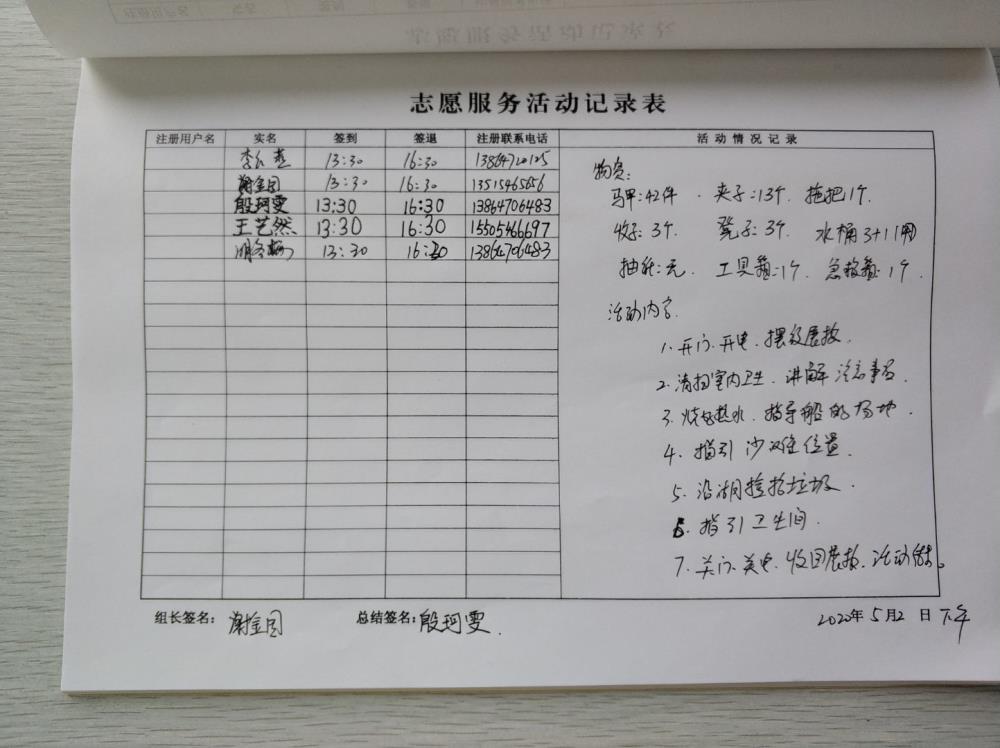 志愿服务活动记录表
注册用户名 实名 签到 签退 注册联系电话 活动情况记录
13:30 16:30 13864720125
谢金园 13:30 16:30 13515465656
殷珂雯 13:30 16:30 13864706483
王艺然 13:30 16:30 15505466697
13:30 16:30 13864706483
物资:
马甲:42件 . 夹子:13个. 拖把1个.
3个. 凳子:3个. 水桶3+1个
抽纸:无. 工具箱:1个. 急救箱:1个.
活动内容
1. 开门.开电.摆放展板.
2. 清扫室内卫生. 讲解注意事项.
3. 烧好热水. 指导船的场地.
4. 指引沙滩位置.
5. 沿湖捡拾垃圾.
6. 指引卫生间.
7. 关门.关电.收回展板.活动结束。
组长签名: 谢金园 总结签名: 殷珂雯. 2020年5月2日下午